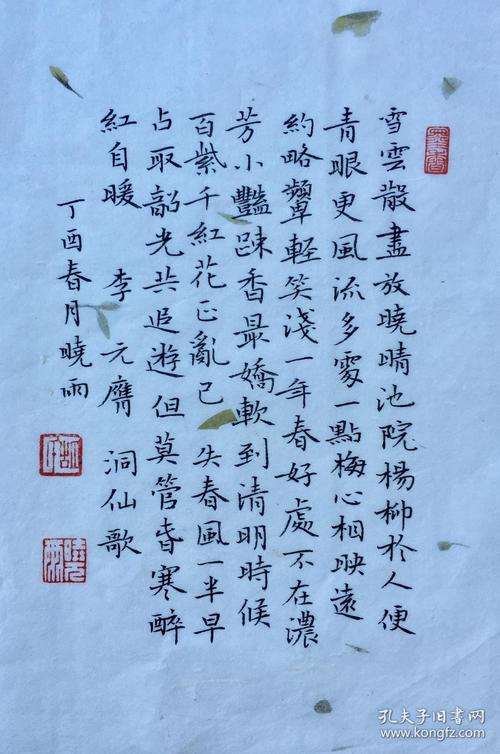 雪雲散盡放曉晴池院楊柳於人便
青眼更風流多處一點梅心相映遠
約略顰輕笑淺一年春好處不在濃
芳小豔踈香最嬌軟到清明時候
百紫千紅花正亂已失春風一半早
占取韶光共追遊但莫管旾寒醉
紅自暖 李元膺 洞仙歌
丁酉春月曉雨
曉雨
孔夫子旧书网
www.kongfz.com